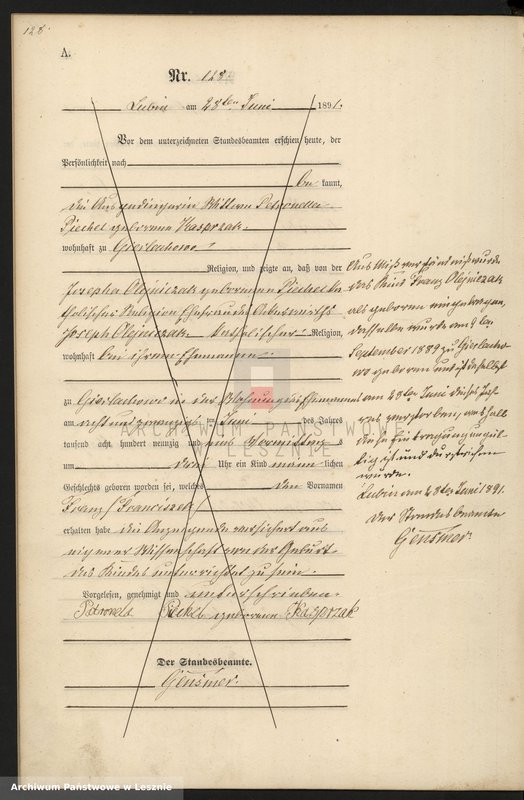 128.
A.
Nr. 128
Lubin am 28ten Juni 1891.
Vor dem unterzeichneten Standesbeamten erschien heute, der
Persönlichkeit nach
be kannt,
die Ausgedingerin Wittwe Petronella
Piechel geborene Kasprzak
wohnhaft zu Gierlachowo
Religion, und zeigte an, daß von der
Josepha Olejniczak geborenen Piechel ka-
tholischer Religion Ehefrau des
Joseph Olejniczak katholischer Religion,
wohnhaft bei ihrem Ehemanne
zu Gierlachowo in der Wohnung des Ehemannes
am acht und zwanzigsten Juni des Jahres
tausend acht hundert neunzig und eins Vormittag s
um drei Uhr ein Kind männ lichen
Geschlechts geboren worden sei, welches den Vornamen
Franz / Franciszek /
erhalten habe die Anzeigende versichert aus
eigener Wissenschaft von der Geburt
des Kindes unterrichtet zu sein.
Vorgelesen, genehmigt und unterschrieben.
Petronela Piechel geborene Kasprzak
Der Standesbeamte.
Gensmer.
Aus Mißverständniß wurde
das Kind Franz Olejniczak
als geboren eingetragen,
dasselbe wurde am 9ten
September 1889 zu Gierlacho-
wo geboren und ist daselbst
am 28ten Juni dieses Jah-
res verstorben, weshalb
diese Eintragung ungül-
tig ist und durchstrichen
wurde.
Lubin am 28ten Juni 1891.
Der Standesbeamte
Gensmer.
ARCHIWUM PAŃSTWOWE
W LESZNIE
Archiwum Państwowe w Lesznie